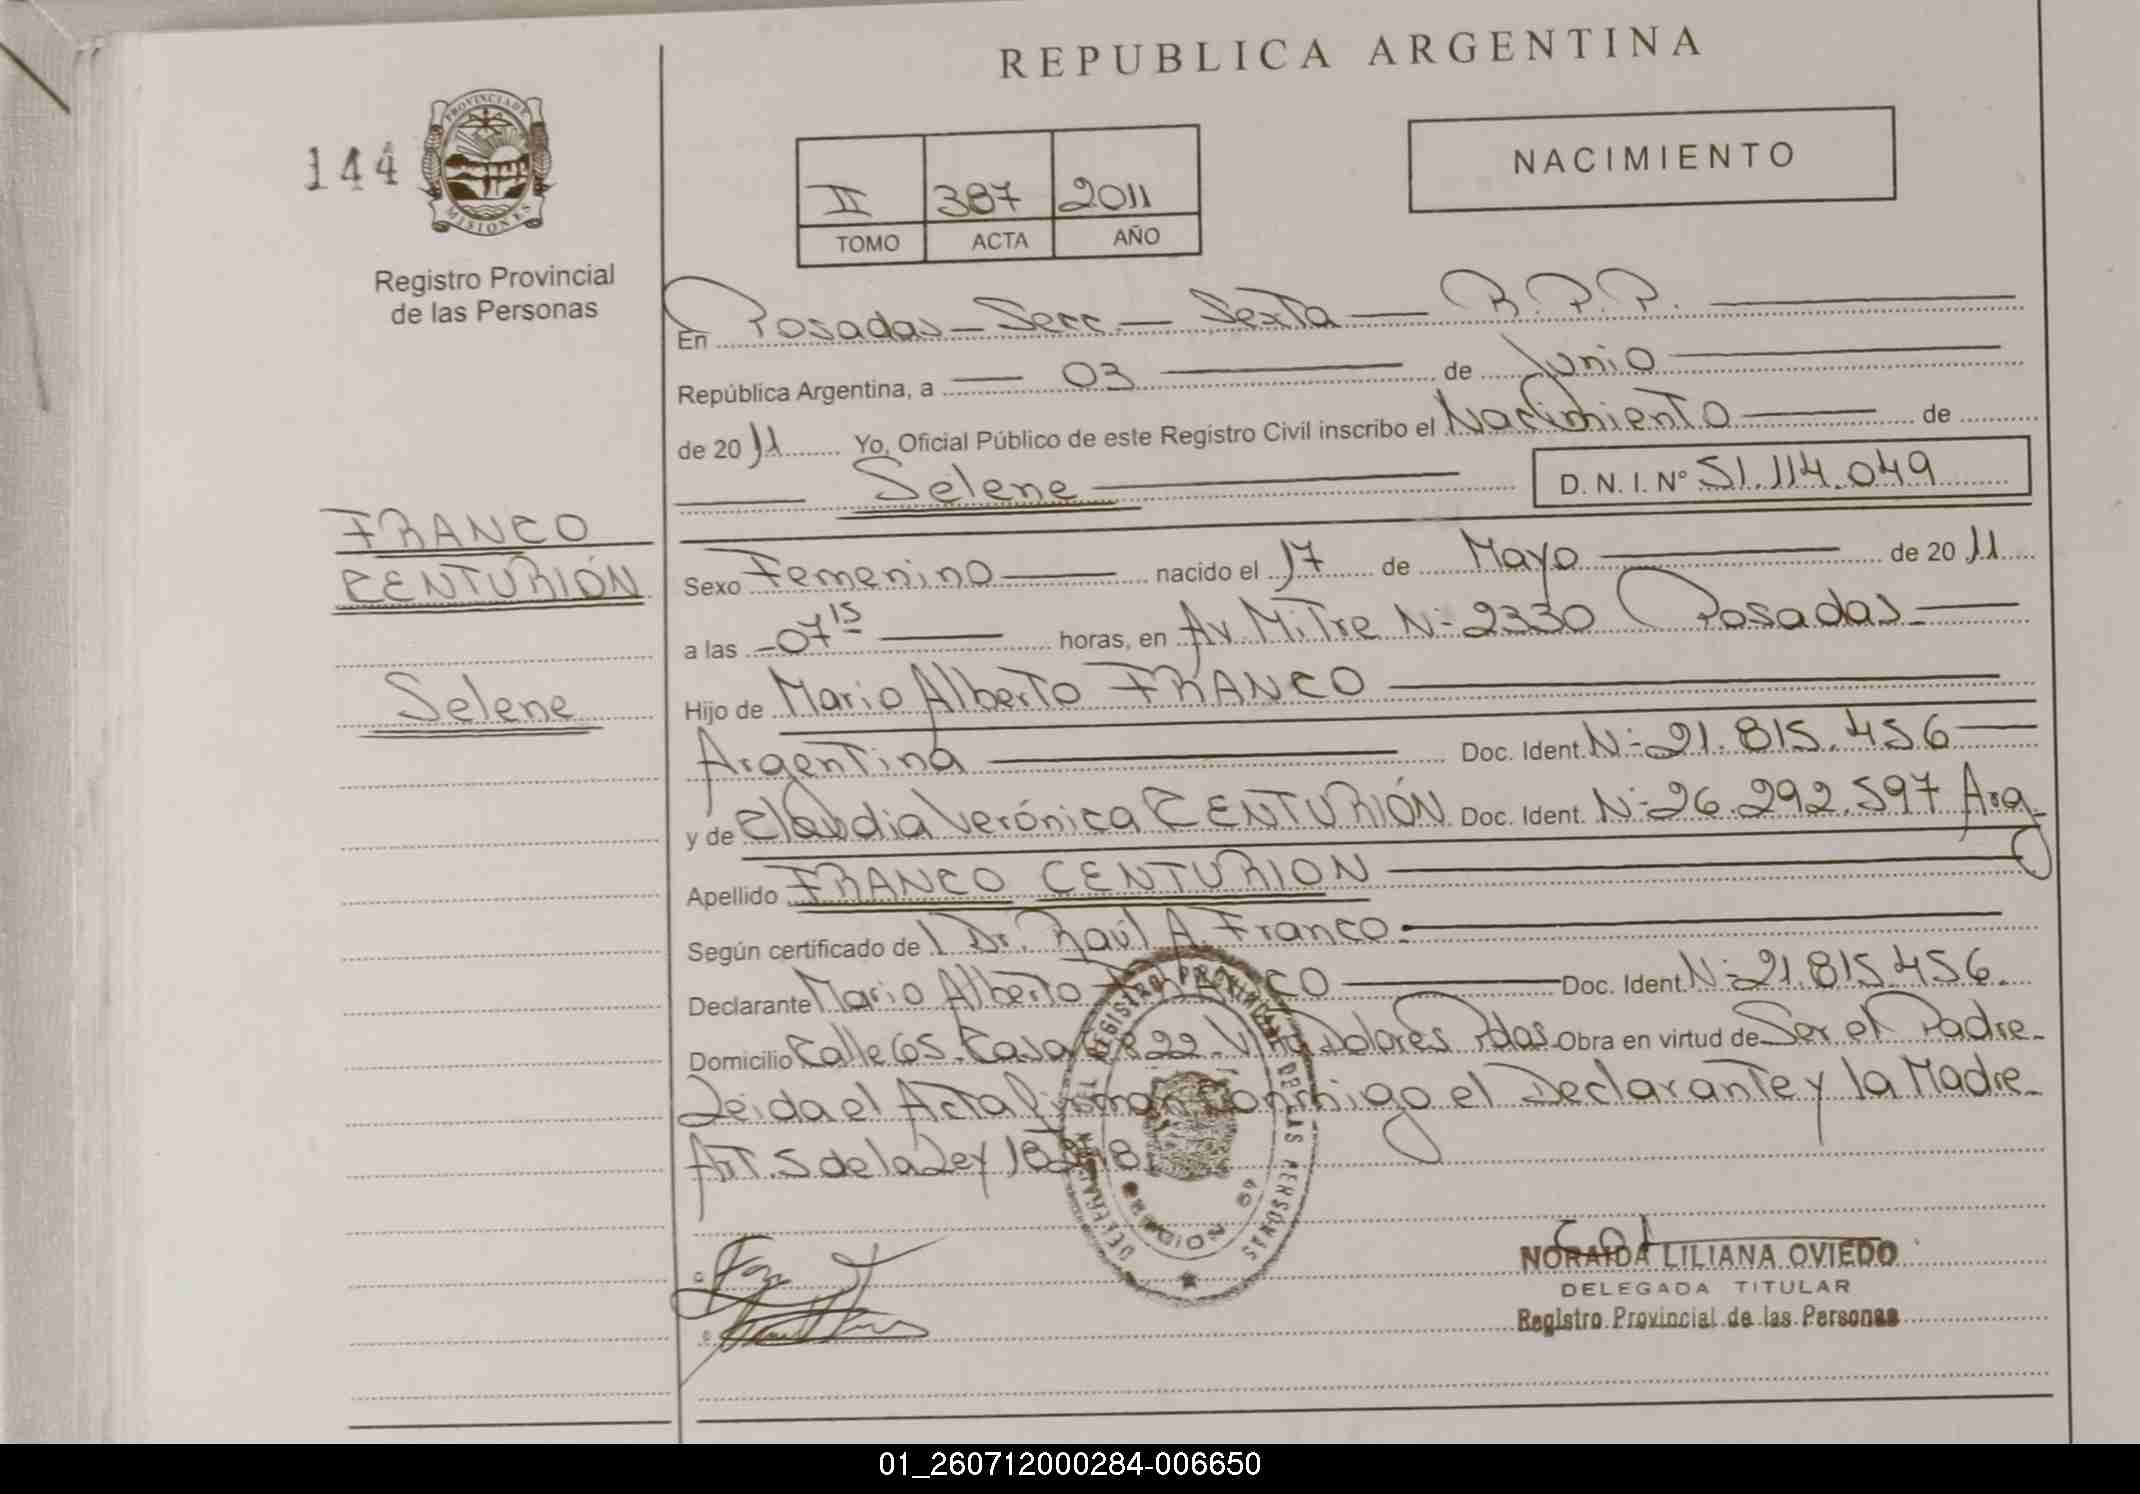 REPUBLICA ARGENTINA
144
PROVINCIA DE
MISIONES
Registro Provincial
de las Personas
NACIMIENTO
II 387 2011
TOMO ACTA AÑO
En Posadas - Secc. - Sexta - R.P.P.
República Argentina, a 03 de Junio
de 2011 Yo, Oficial Público de este Registro Civil inscribo el Nacimiento de
Selene D. N. I. Nº 51.114.049
FRANCO
CENTURIÓN
Selene
Sexo Femenino nacido el 17 de Mayo de 2011
a las 07 15 horas, en Av. Mitre N- 2330 Posadas -
Hijo de Mario Alberto FRANCO
Argentina Doc. Ident. N- 21.815.456
y de Claudia Verónica CENTURIÓN Doc. Ident. N- 26.292.597 Arg.
Apellido FRANCO CENTURION
Según certificado de Dr. Raúl A. Franco.
Declarante Mario Alberto FRANCO Doc. Ident. N- 21.815.456.
Domicilio Calle 65. Casa 22 - Villa Dolores Pdas Obra en virtud de Ser el Padre.
Leida el Acta firman Conmigo el Declarante y la Madre.
Art. 5 de la Ley
DELEGACION DEL REGISTRO PROVINCIAL DE LAS PERSONAS
NORAIDA LILIANA OVIEDO
DELEGADA TITULAR
Registro Provincial de las Personas
01_260712000284-006650